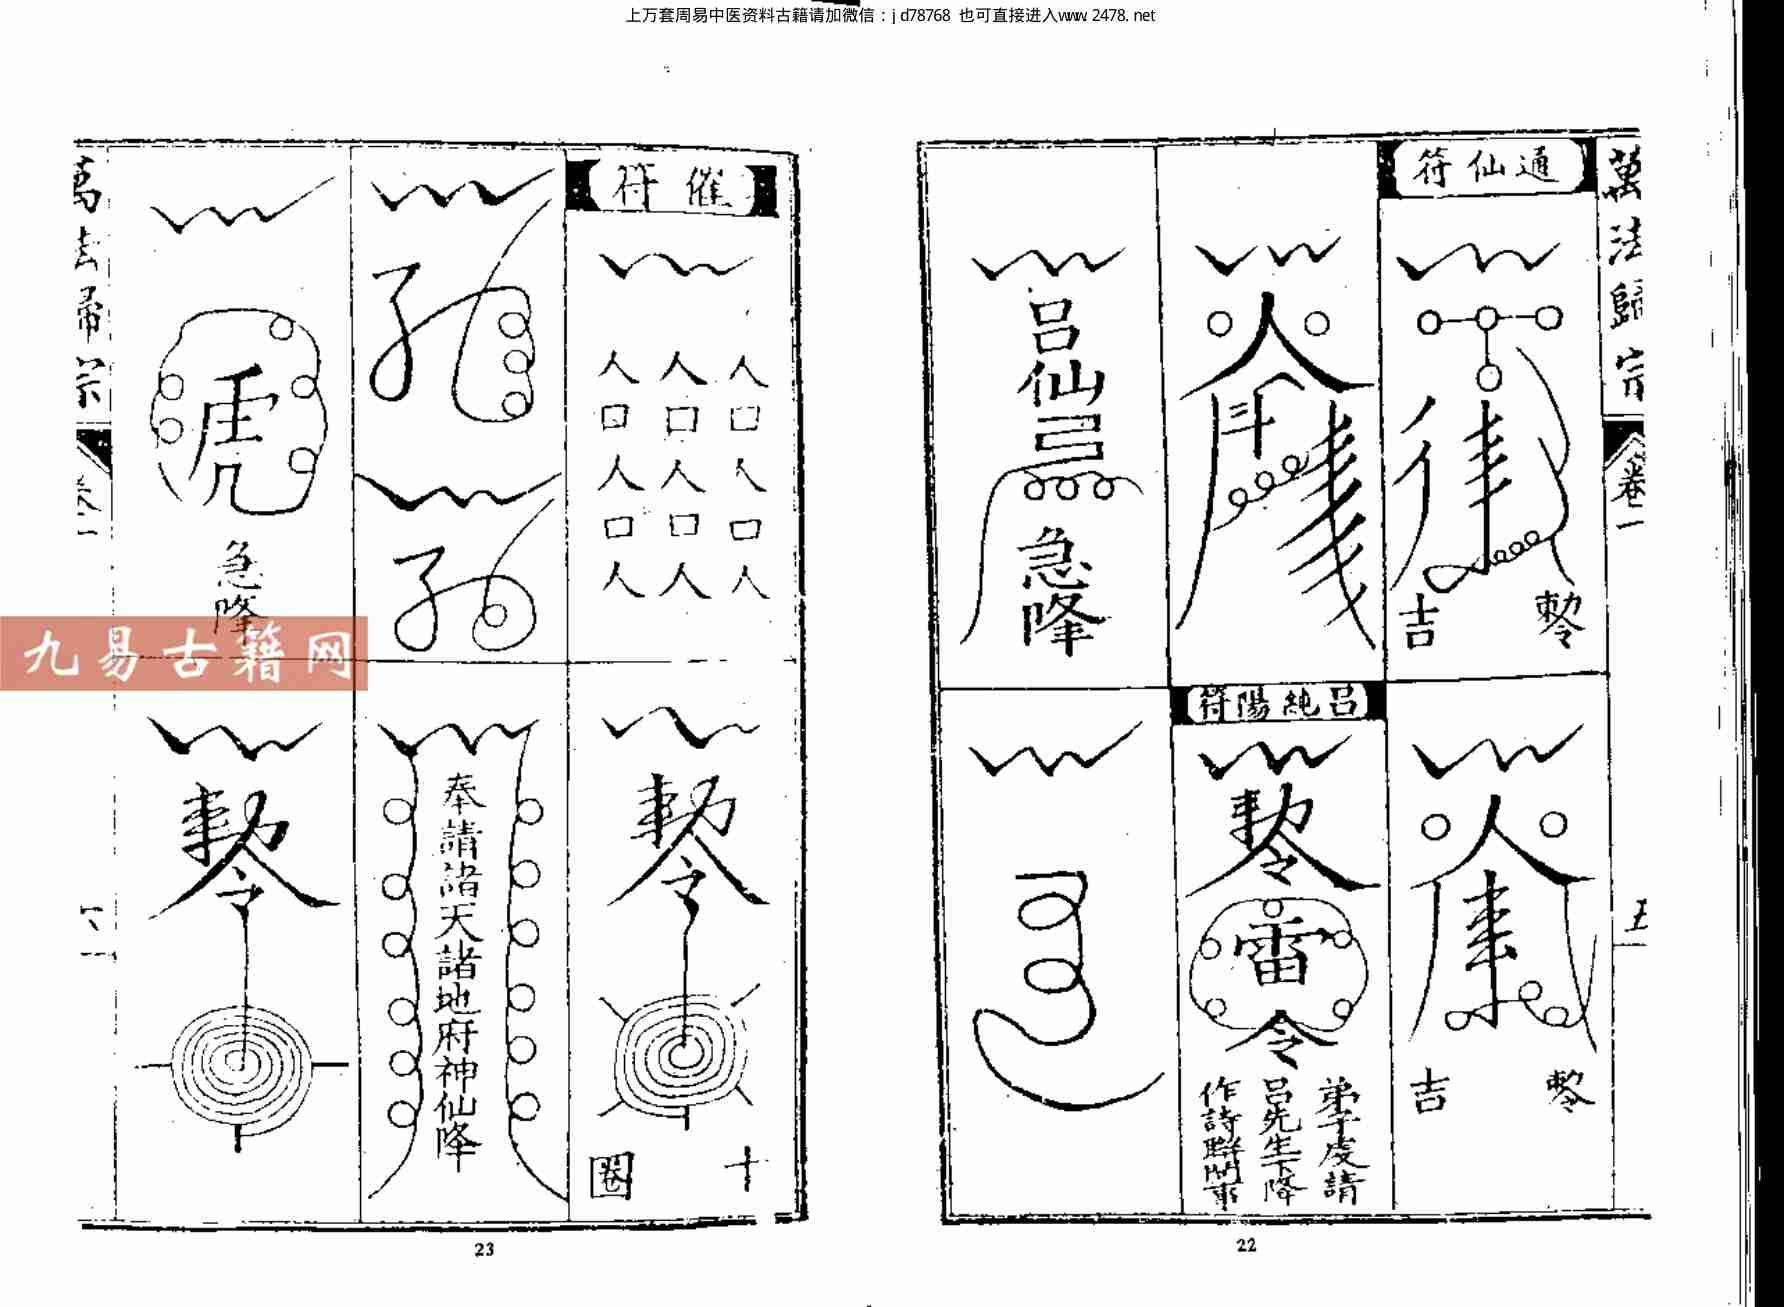 上万套周易中医资料古籍请加微信：jd78768 也可直接进入www.2478.net
萬法歸宗
卷一
五
通仙符
勅令
吉
斗
勅令
吉
呂純陽符
勅令
雷
令
弟子虔請
呂先生下降
作詩聯問事
呂仙
急降
22
催符
人人人
口口口
人人人
口口口
人人人
勅令
十
圈
奉請諸天諸地府神仙降
虎
急降
勅令
萬法歸宗
卷一
六
23
九易古籍网